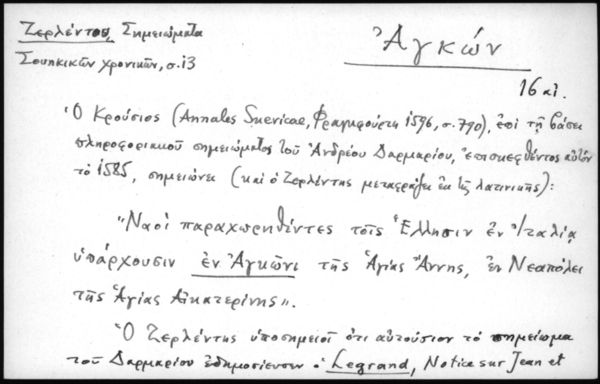 Ζερλέντου, Σημειώματα
Ἀγκών
Σουηκικῶν χρονικῶν, σ. 13
16 αἰ.
Ὁ Κρούσιος (Annales Suevicae, Φραγκφούρτη 1596, σ. 790), ἐπὶ τῇ βάσει
πληροφοριακοῦ σημειώματος τοῦ Ἀνδρέου Δαρμαρίου, ἐπισκεφθέντος αὐτὸν
τὸ 1585, σημειώνει (καὶ ὁ Ζερλέντης μεταφράζει ἐκ τῆς λατινικῆς):
"Ναοὶ παραχωρηθέντες τοῖς Ἕλλησιν ἐν Ἰταλίᾳ
ὑπάρχουσιν ἐν Ἀγκῶνι τῆς Ἁγίας Ἄννης, ἐν Νεαπόλει
τῆς Ἁγίας Αἰκατερίνης".
Ὁ Ζερλέντης ὑποσημειοῖ ὅτι αὐτούσιον τὸ σημείωμα
τοῦ Δαρμαρίου ἐδημοσίευσεν ὁ Legrand, Notice sur Jean et